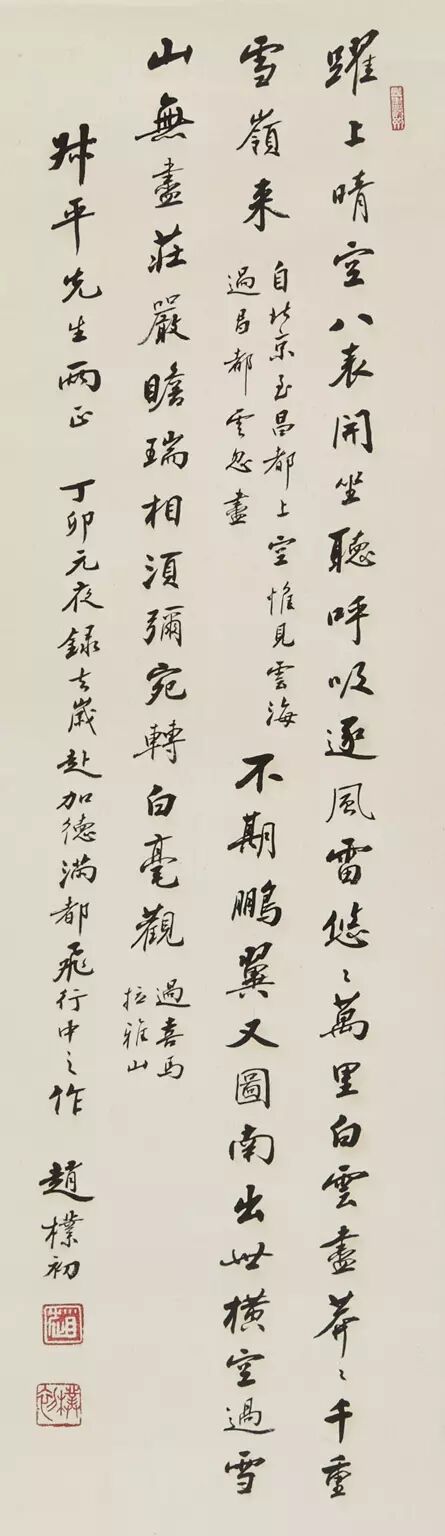 躍上晴空八表開坐聽呼吸逐風雷悠〻萬里白雲盡莽〻千重
雪嶺来
自北京至昌都上空惟見雲海
過昌都雲忽盡
不期鵬翼又圖南出世橫空過雪
山無盡莊嚴瞻瑞相須彌宛轉白毫觀
過喜馬
拉雅山
叔平先生兩正 丁卯元夜録去歲赴加德满都飛行中之作 趙樸初
趙
樸初